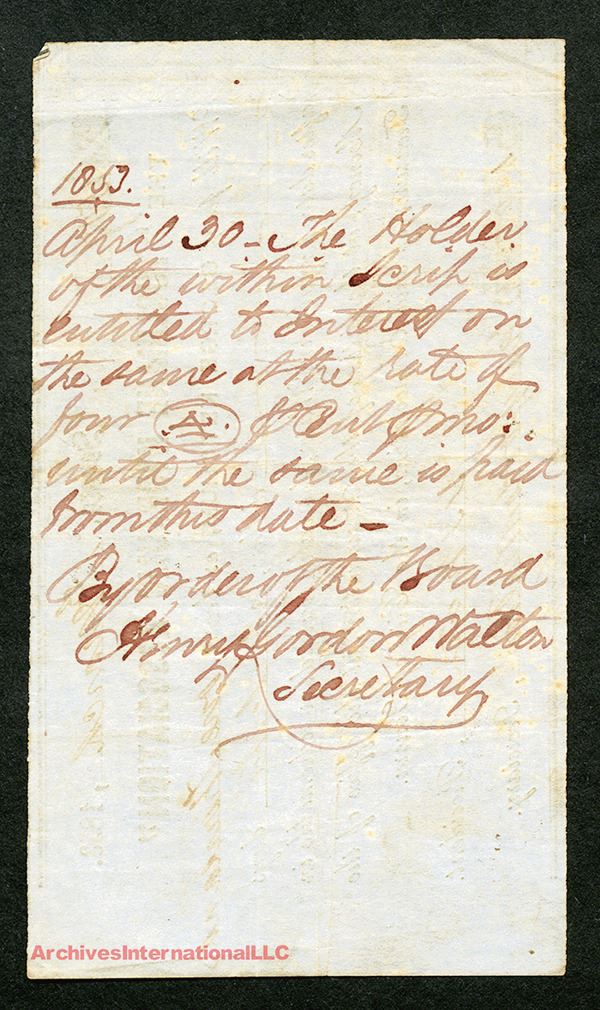 1853.
April 30 - The Holder
of the within Scrip is
entitled to Interest on
the same at the rate of
four (4.) P Cent P mo:
until the same is paid
from this date -
By Order of the Board
Henry Gordon Walton
Secretary
ArchivesInternationalLLC